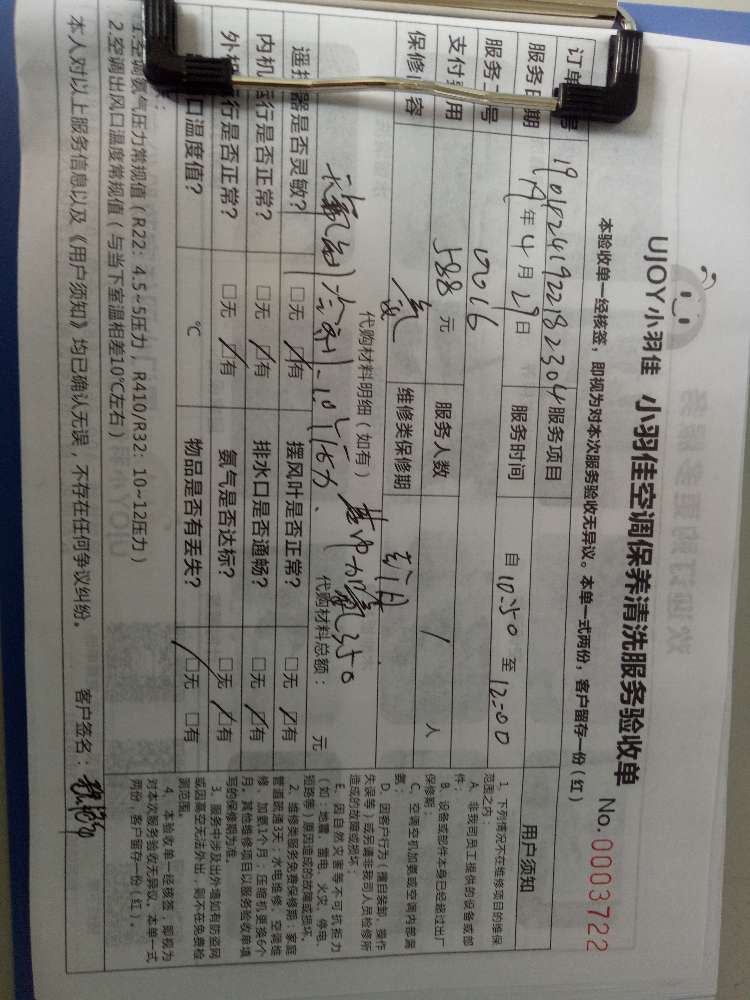 UJOY小羽佳 小羽佳空调保养清洗服务验收单
No.0003722
本验收单一经核签，即视为对本次服务验收无异议。本单一式两份，客户留存一份(红)
订单号 服务项目
服务日期 19年4月29日 服务时间 自10:50至12:00
服务工号 0016 服务人数 1人
支付费用 588元
保修内容 维修类保修期
代购材料明细（如有）
代购材料总额： 元
遥控器是否灵敏? □无 □有 摆风叶是否正常? □无 □有
内机运行是否正常? □无 □有 排水口是否通畅? □无 □有
外机运行是否正常? □无 □有 氨气是否达标? □无 □有
口温度值? ℃ 物品是否有丢失? □无 □有
1.空调氨气压力常规值（R22：4.5~5压力，R410/R32：10~12压力）
2.空调出风口温度常规值（与当下室温相差10℃左右）
本人对以上服务信息以及《用户须知》均已确认无误，不存在任何争议纠纷。 客户签名：
用户须知
1、下列情况不在维修项目的维保
范围之内：
A、非我司员工提供的设备或部
件；
B、设备或部件本身已经超过出厂
保修期；
C、空调空机加氨或空调内部漏
氨；
D、因客户行为（擅自装卸、操作
失误等）或另请非我司人员检修所
造成的故障或损坏；
E、因自然灾害等不可抗拒力
（如：地震、雷电、火灾、停电、
短路等）原因造成的故障或损坏。
2、维修类服务免费保修期：家庭
管道疏通3天；水电维修、空调维
修、加氨1个月；压缩机更换6个
月。其他维修项目以服务验收单填
写的保修期为准。
3、服务中涉及出外墙如有防盗网
或因高空无法外出，则不在免费检
测范围。
4、本验收单一经核签，即视为
对本次服务验收无异议。本单一式
两份，客户留存一份（红）。